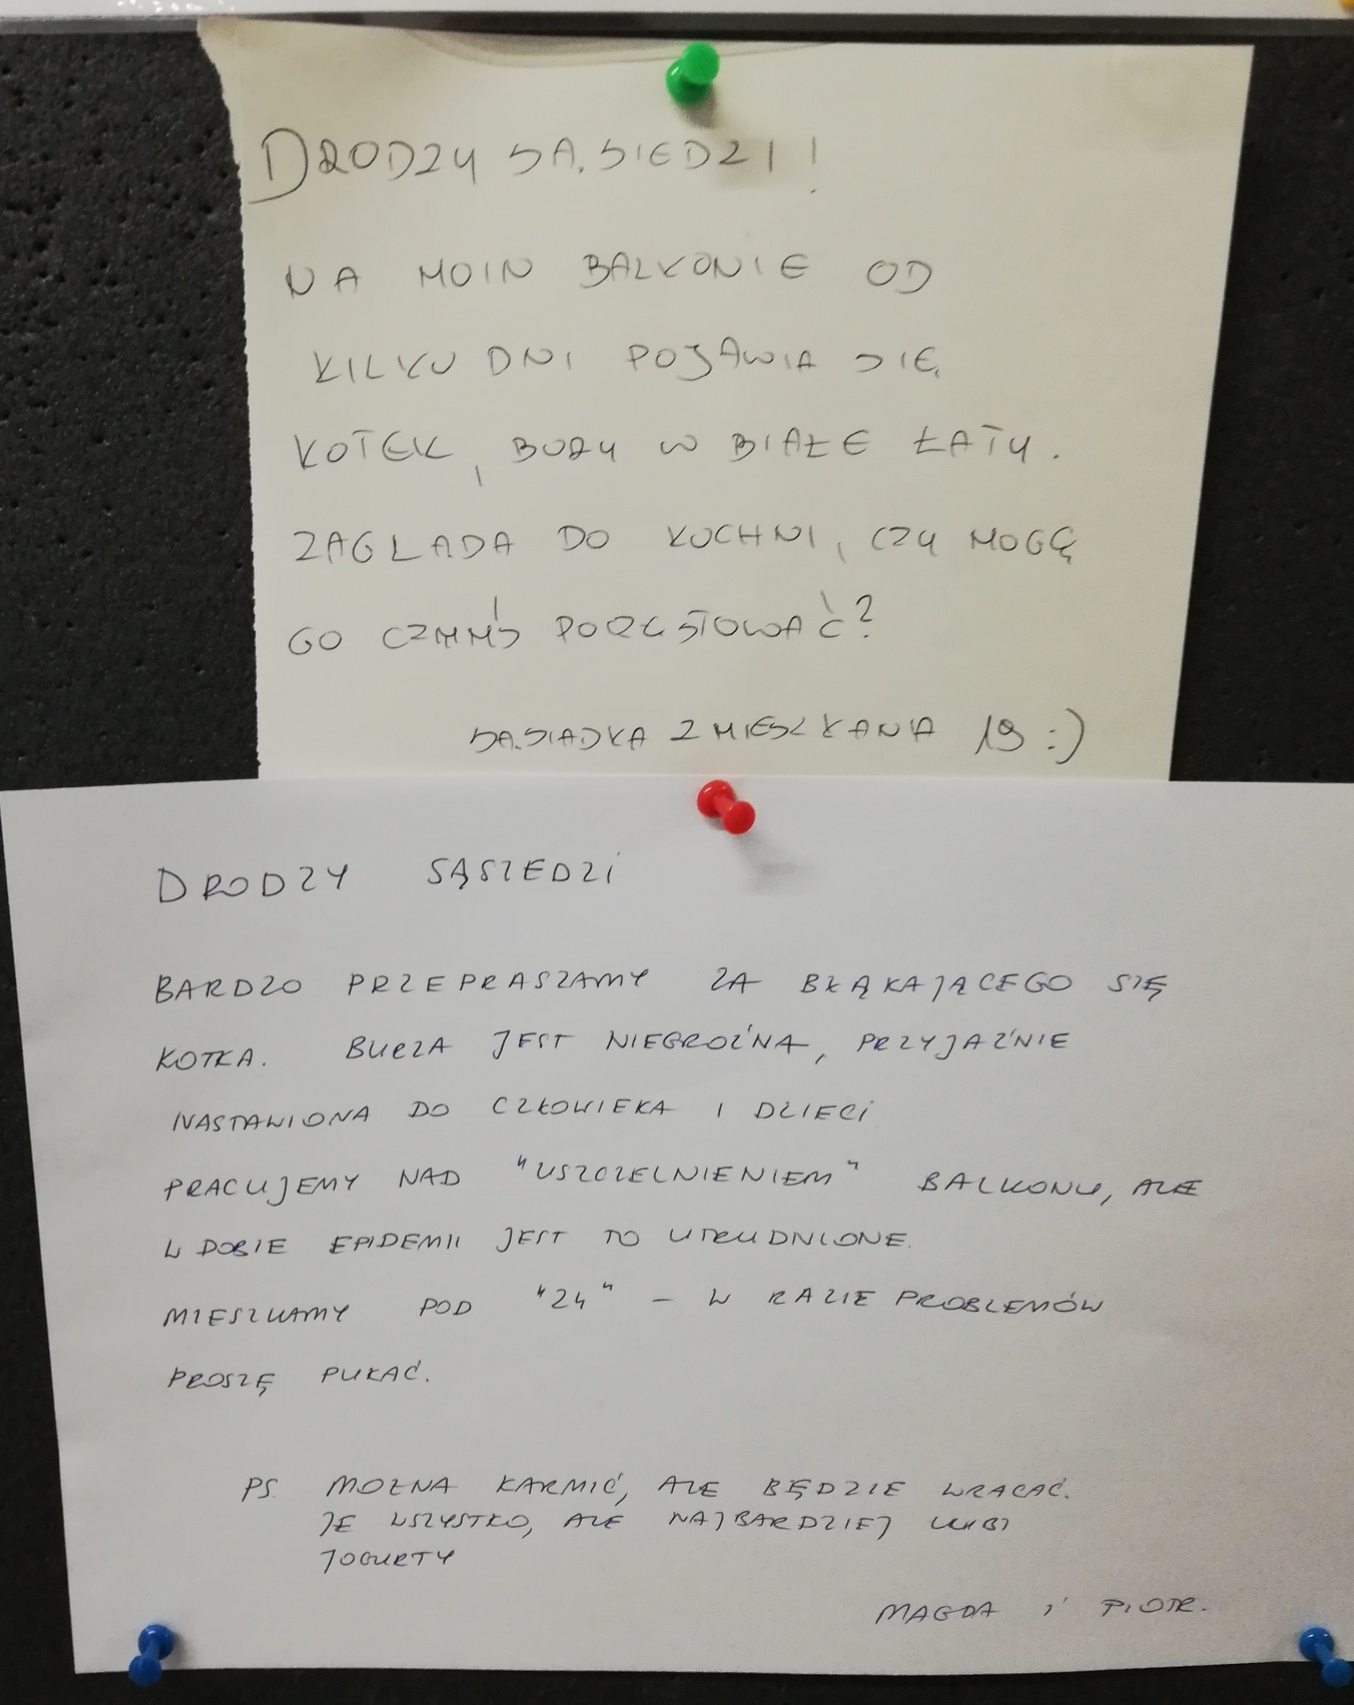 DRODZY SĄSIEDZI!
NA MOIM BALKONIE OD
KILKU DNI POJAWIA SIĘ
KOTEK, BURY W BIAŁE ŁATY.
ZAGLĄDA DO KUCHNI, CZY MOGĘ
GO CZYMŚ POCZĘSTOWAĆ?
SĄSIADKA Z MIESZKANIA 19 :)
DRODZY SĄSIEDZI
BARDZO PRZEPRASZAMY ZA BŁĄKAJĄCEGO SIĘ
KOTKA. BURZA JEST NIEGROŹNA, PRZYJAŹNIE
NASTAWIONA DO CZŁOWIEKA I DZIECI
PRACUJEMY NAD "USZCZELNIENIEM" BALKONU, ALE
W DOBIE EPIDEMII JEST TO UTRUDNIONE.
MIESZKAMY POD "24" – W RAZIE PROBLEMÓW
PROSZĘ PUKAĆ.
PS. MOŻNA KARMIĆ, ALE BĘDZIE WRACAĆ.
JE WSZYSTKO, ALE NAJBARDZIEJ LUBI
JOGURTY
MAGDA i PIOTR.